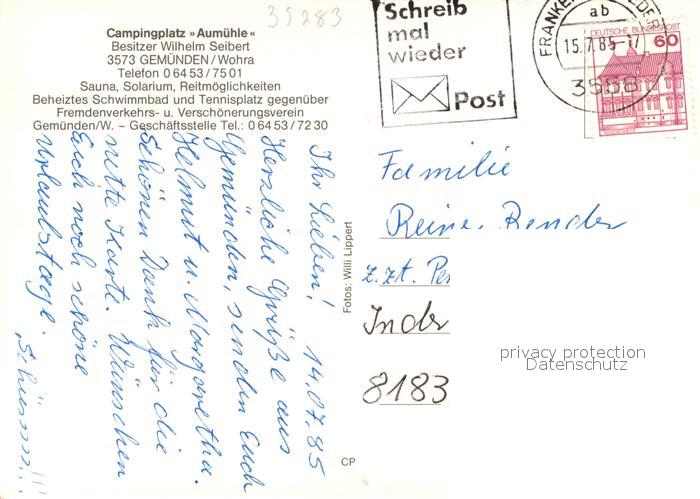 35283
Campingplatz »Aumühle«
Besitzer Wilhelm Seibert
3573 GEMÜNDEN/Wohra
Telefon 0 64 53 / 75 01
Sauna, Solarium, Reitmöglichkeiten
Beheiztes Schwimmbad und Tennisplatz gegenüber
Fremdenverkehrs- u. Verschönerungsverein
Gemünden/W. – Geschäftsstelle Tel.: 0 64 53 / 72 30
Ihr Lieben! 14.07.85
Herzliche Grüße aus
Gemünden, senden Euch
Helmut u. Margaretha.
Schönen Dank für die
nette Karte. Wünschen
Euch noch schöne
Urlaubstage.
Schüsssss!!!
Fotos: Willi Lippert
CP
Schreib
mal
wieder
Post
FRANKEN
ab
15.7.85-17
DEUTSCHE BUNDESPOST
60
Familie
Reiner Bender
z.Zt. Pe
8183
privacy protection
Datenschutz